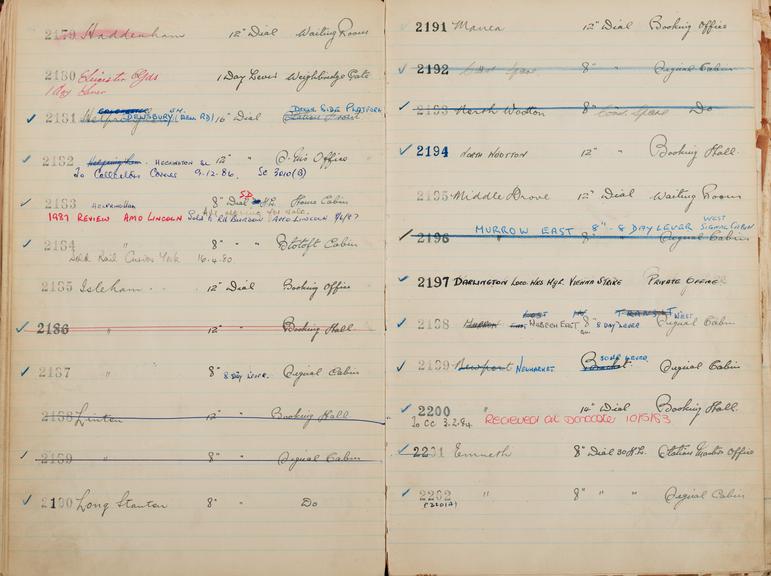 2179 Haddenham 12" Dial Waiting Room
2180 Leicester Yds 1 Day Lever Weighbridge Gate
1 Day Lever
DOWN SIDE PLATFORM
2181 DEWSBURY (REN RD) 16" Dial
2182 Helpringham. HECKINGTON 12" " Office
To Collectors Corner 9.12.86. SC 3010(B)
S.D.
2183 HELPRINGHAM 8" Dial Home Cabin
1987 REVIEW AMO LINCOLN Sold to R.H. BURDEN AMO LINCOLN
2184 " 8" " " Blotoft Cabin
Sold Rail Curios York 16.4.80.
2185 Isleham 12" Dial Booking Office
2186 " 12" " Booking Hall
2187 " 8" 8 Day Lever. Signal Cabin
2188 Linton 12" " Booking Hall
2189 " 8" " Signal Cabin
2190 Long Stanton 8" " Do
2191 Manea 12" Dial Booking Office
2192 8" " Signal Cabin
2193 North Wootton 8" Cond. Spare Do
2194 NORTH WOOTTON 12" " Booking Hall.
2195 Middle Drove 12" Dial Waiting Room
MURROW EAST 8" - 8 DAY LEVER WEST SIGNAL CABIN
2196 " 8" Signal Cabin
2197 DARLINGTON LOCO. WKS MGR. VIENNA STRIKE PRIVATE OFFICE
LOST IN TRANSIT WEST
2198 MURROW EAST WISBECH EAST 8" 8 DAY LEVER Signal Cabin
2199 Newport NEWMARKET Bracket LEVER Signal Cabin
2200 " 14" Dial Booking Hall.
To CC 3.2.84. RECIEVED at Doncaster 10/5/83
2201 Emneth 8" Dial 30Hr. Station Masters Office
2202 " 8" " " Signal Cabin
(2201A)